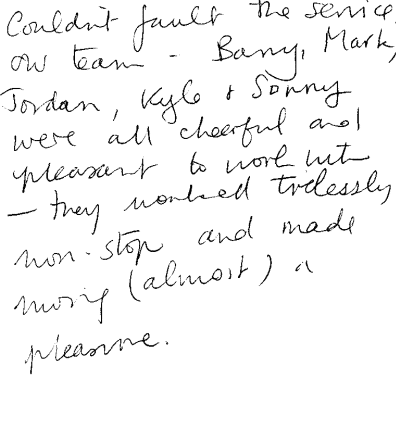 Couldn't fault the service,
our team - Barry, Mark,
Jordan, Kyle & Sonny
were all cheerful and
pleasant to work with
- they worked tirelessly
non-stop and made
moving (almost) a
pleasure.